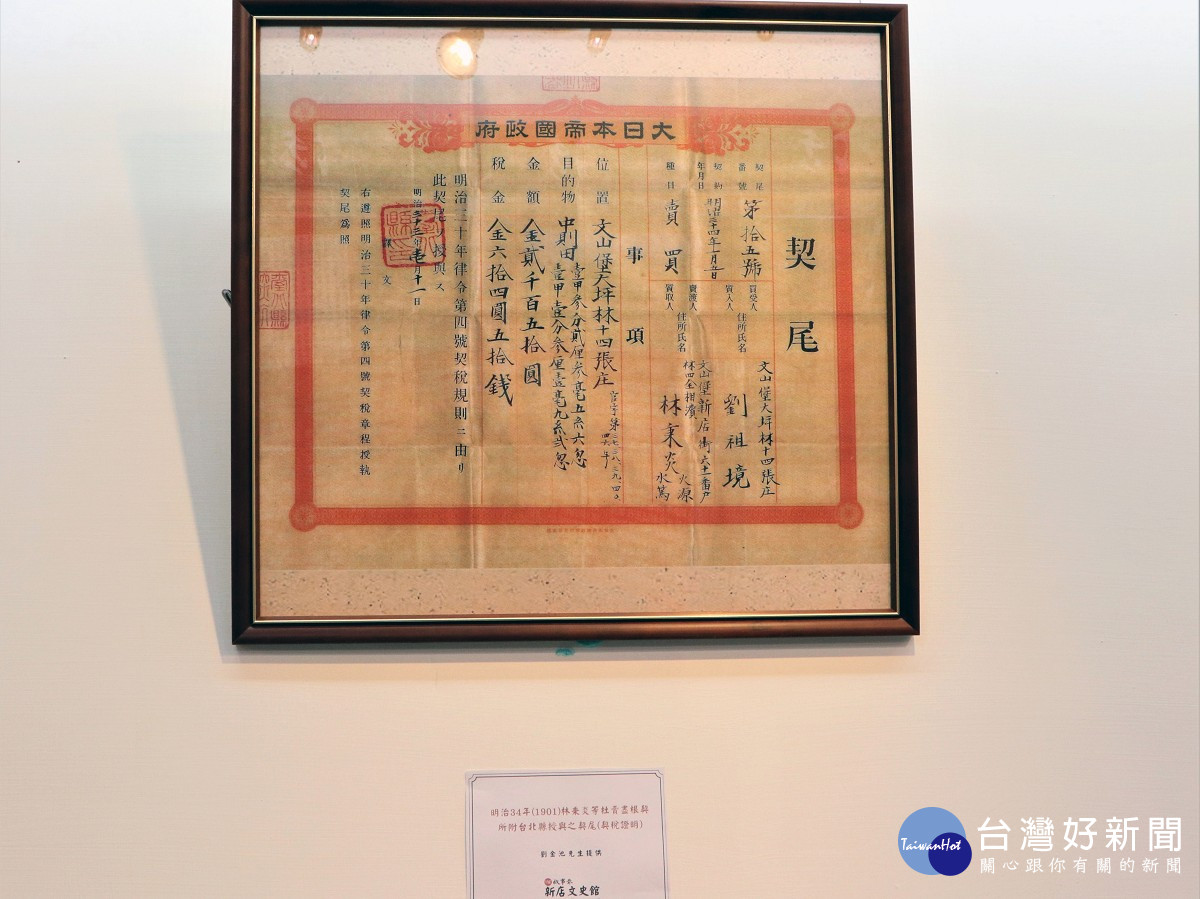 大日本帝國政府
契尾
契尾番號 第拾五號
契約年月日 明治三十四年一月五日
種目 賣買
買受人
質入人
住所氏名
文山堡大坪林十四張庄
劉祖境
賣渡人
質取人
住所氏名
文山堡新店街六十一番戶
林秉炎
火源
水篤
事項
位置 文山堡大坪林十四張庄
目的物 中則田
壹甲參分貳厘叁毫五糸六忽
壹甲壹分參厘壹毫九糸弍忽
金額 金貳千百五拾圓
稅金 金六拾四圓五拾錢
明治三十年律令第四號契稅規則ニ由リ
此契尾ヲ授與ス
月十一日
文
右遵照明治三十年律令第四號契稅章程授執
契尾為照
明治34年(1901)林秉炎等杜賣盡根契
所附台北縣授與之契尾(契稅證明)
劉金池先生提供
新店文史館
TaiwanHot
台灣好新聞
關心跟你有關的新聞